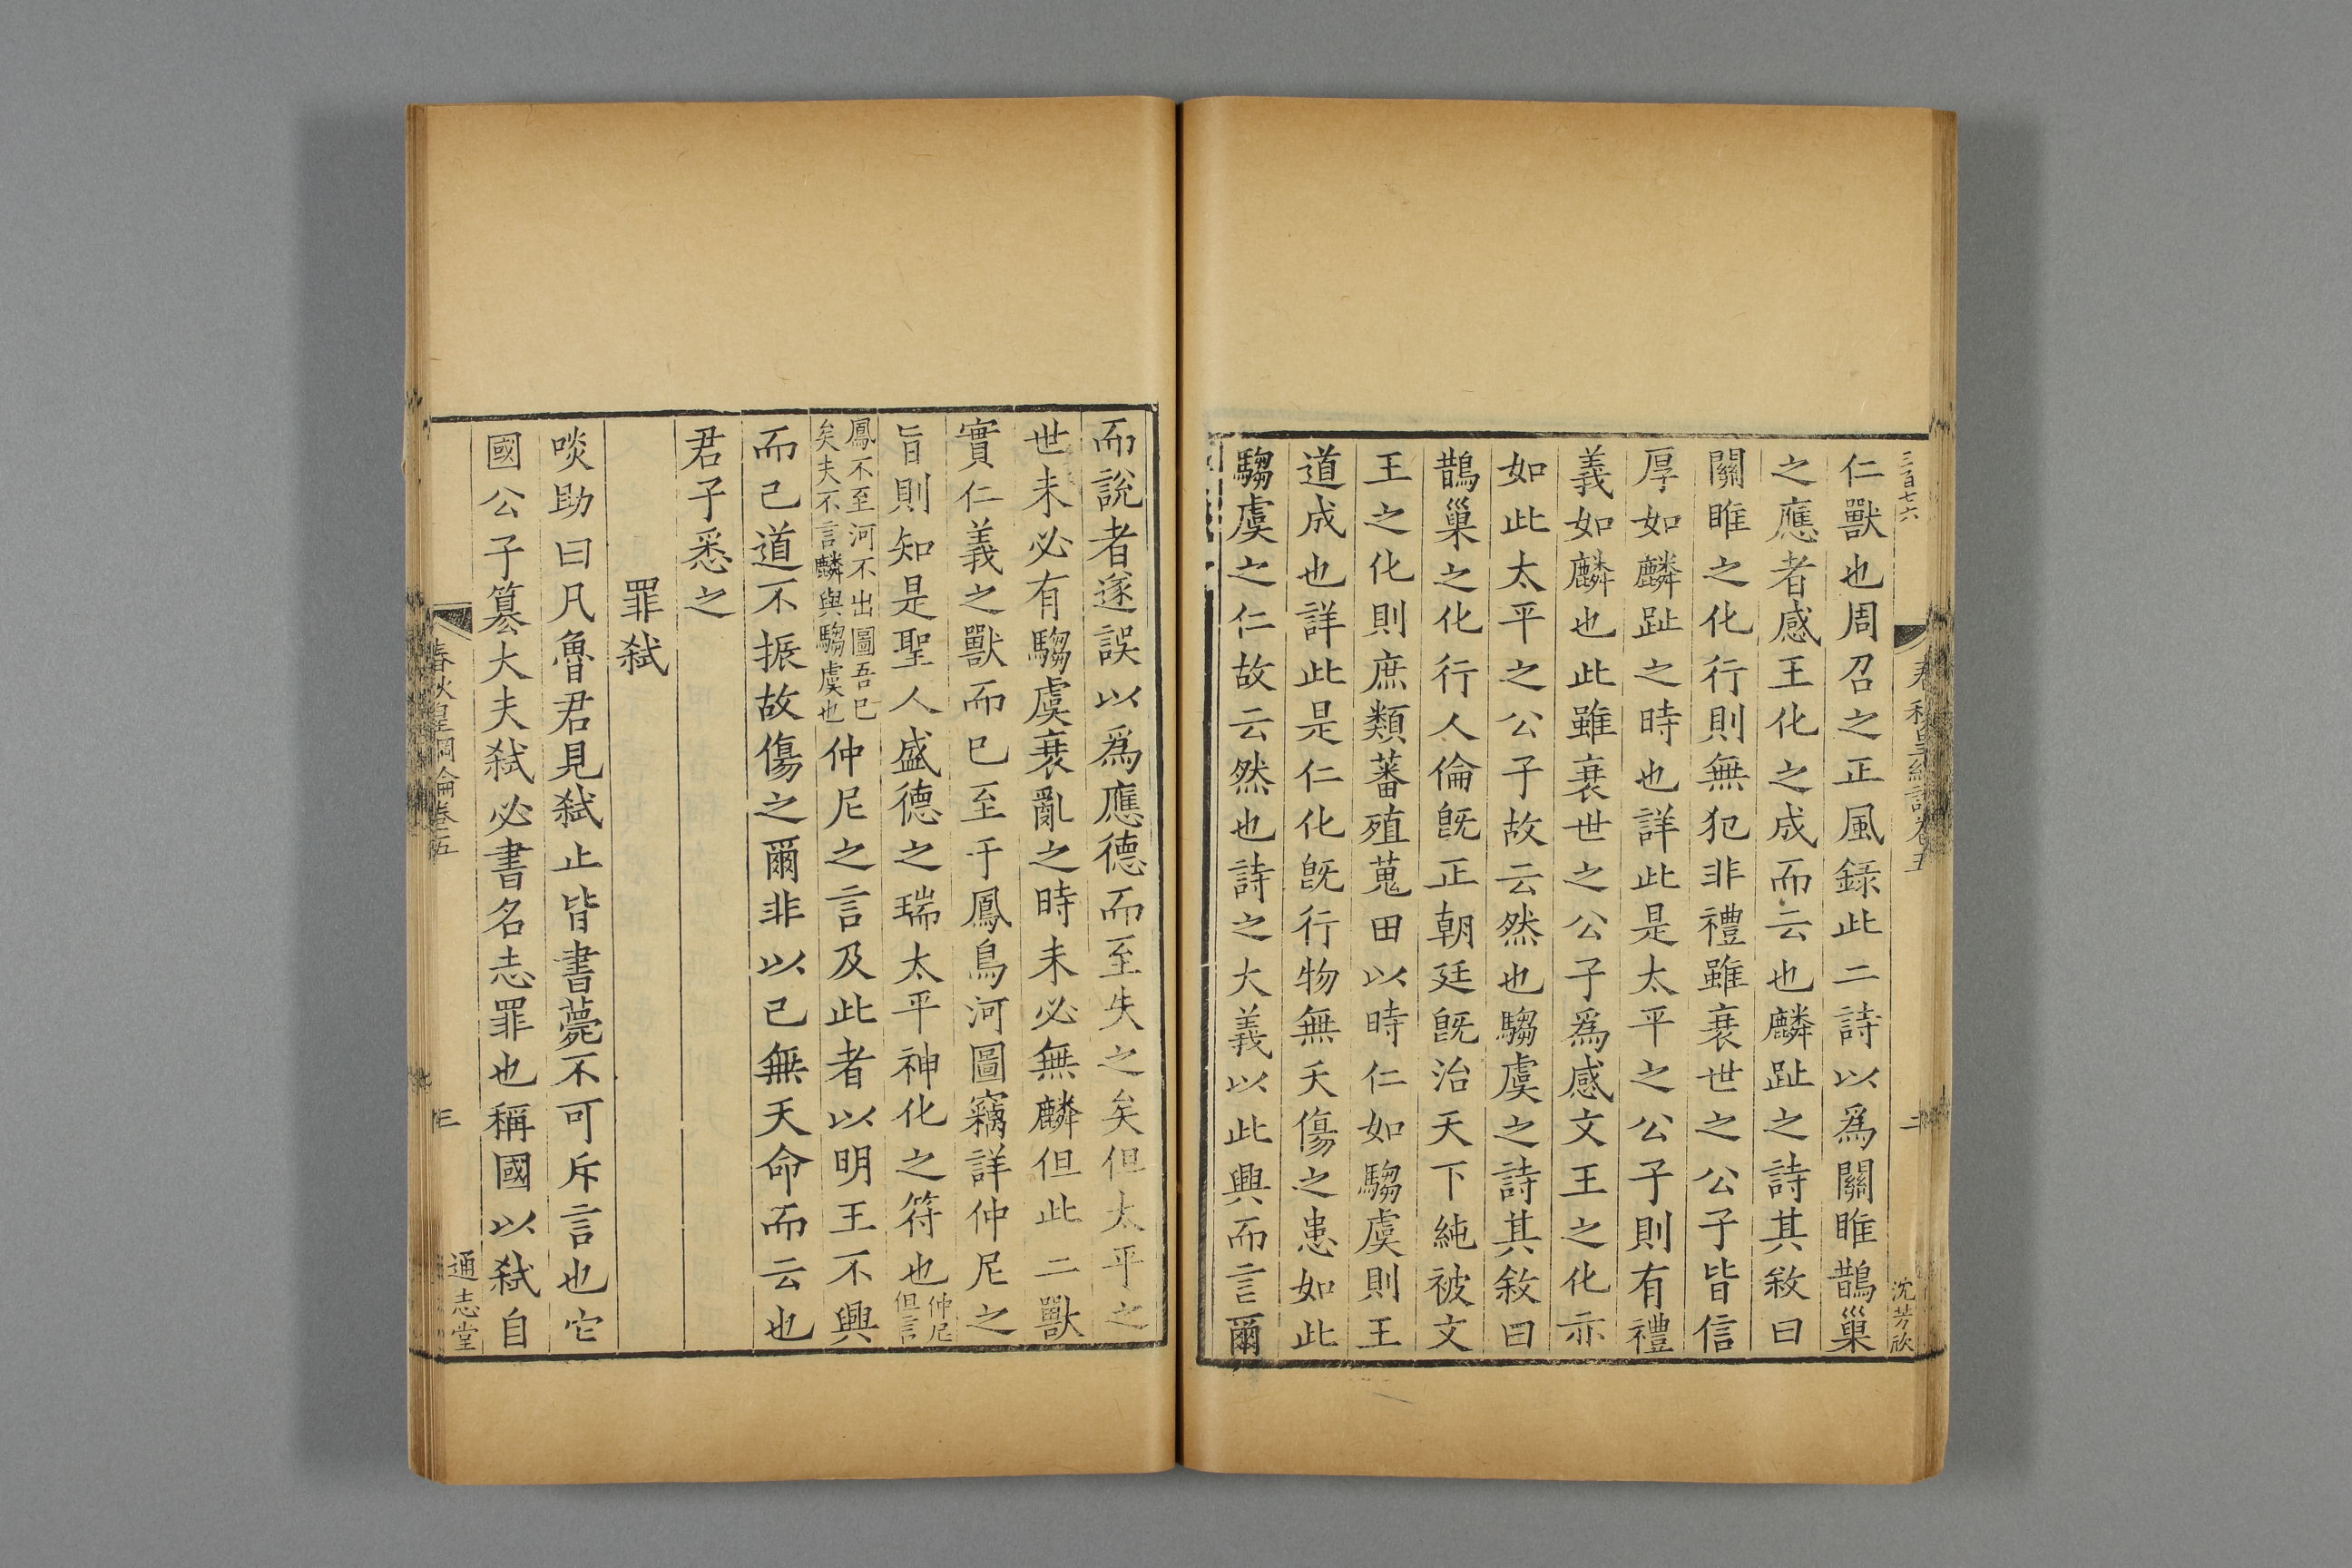 三百七六
春秋皇綱論卷五
二
沈芳欣
仁獸也周召之正風録此二詩以爲關雎鵲巢
之應者感王化之成而云也麟趾之詩其敘曰
關雎之化行則無犯非禮雖衰世之公子皆信
厚如麟趾之時也詳此是太平之公子則有禮
義如麟也此雖衰世之公子爲感文王之化亦
如此太平之公子故云然也騶虞之詩其敘曰
鵲巢之化行人倫旣正朝廷旣治天下純被文
王之化則庶類蕃殖蒐田以時仁如騶虞則王
道成也詳此是仁化旣行物無夭傷之患如此
騶虞之仁故云然也詩之大義以此興而言爾
而說者遂誤以爲應德而至失之矣但太平之
世未必有騶虞衰亂之時未必無麟但此二獸
實仁義之獸而巳至于鳳鳥河圖竊詳仲尼之
旨則知是聖人盛德之瑞太平神化之符也仲尼但言
鳳不至河不出圖吾巳矣夫不言麟與騶虞也仲尼之言及此者以明王不興
而己道不振故傷之爾非以己無天命而云也
君子悉之
罪弑
啖助曰凡魯君見弑止皆書薨不可斥言也它
國公子篡大夫弑必書名志罪也稱國以弑自
春秋皇綱論卷五
三
通志堂